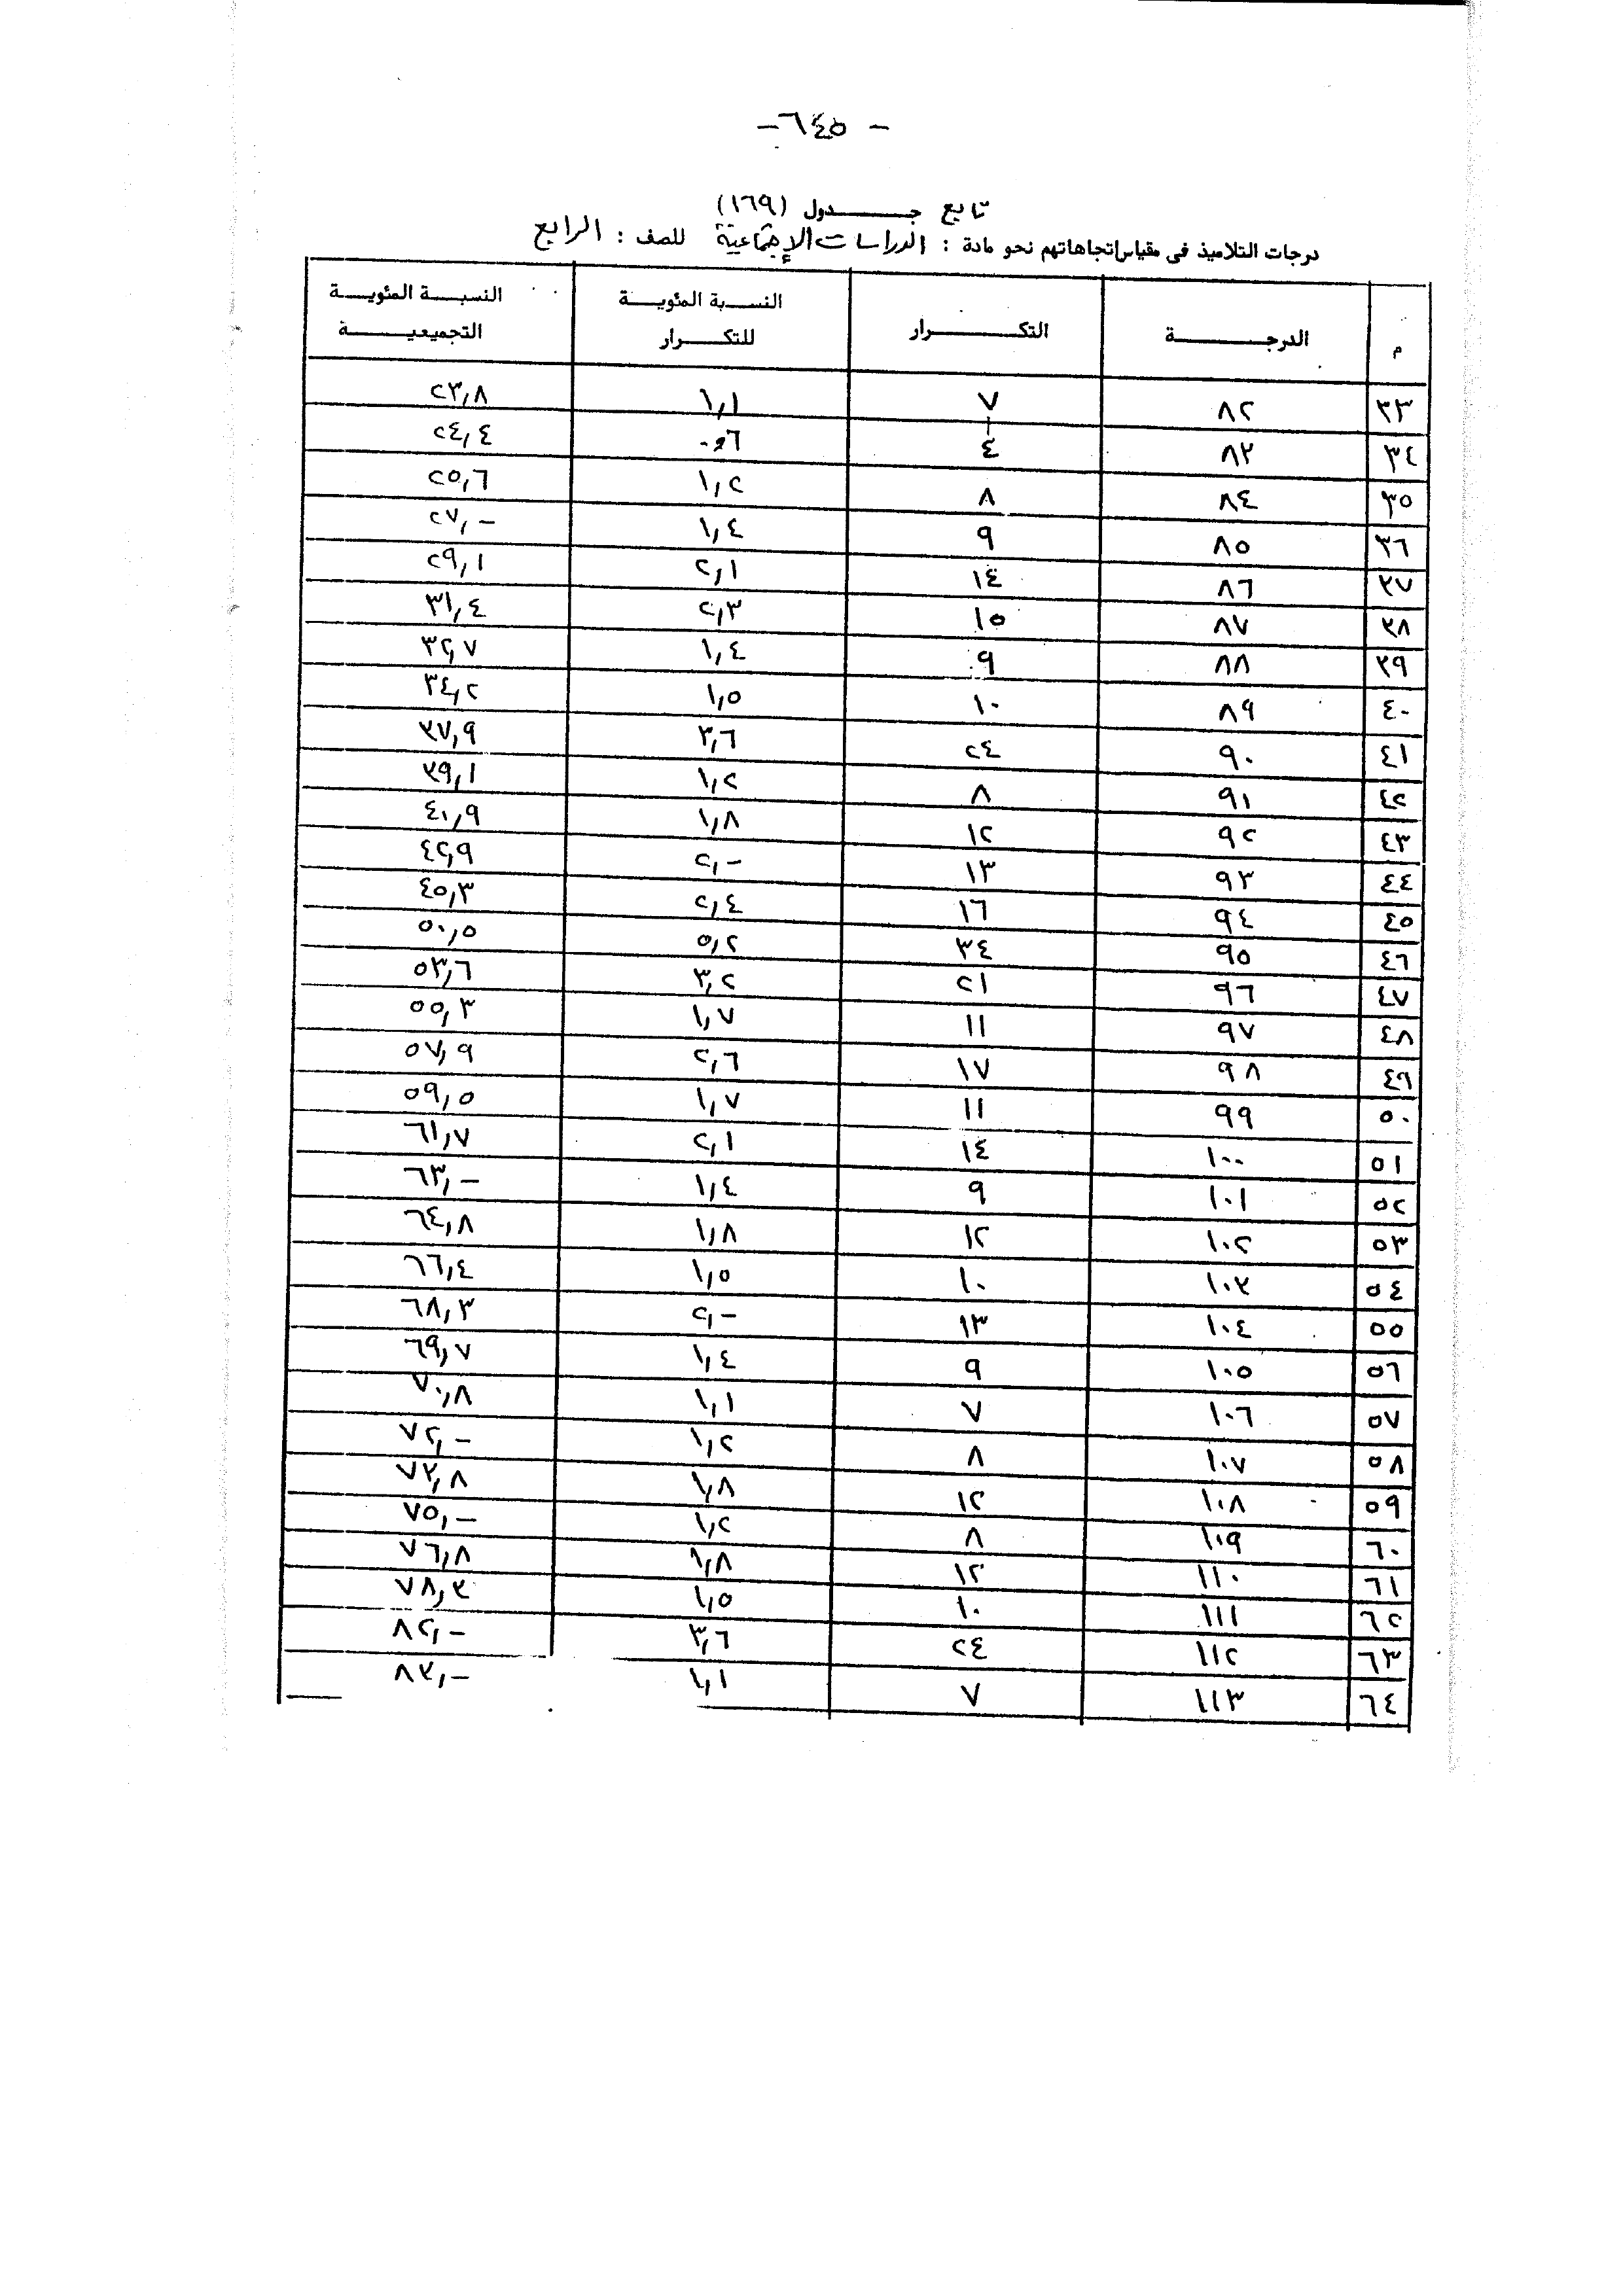 - ٦٤٥ -
تابع جدول (١٦٩)
درجات التلاميذ فى مقياس اتجاهاتهم نحو مادة : الدراسات الإجتماعية للصف : الرابع
م الدرجة التكرار النسبة المئوية للتكرار النسبة المئوية التجميعية
٣٣ ٨٢ ٧ ١,١ ٢٣,٨
٣٤ ٨٣ ٤ ٠,٦ ٢٤,٤
٣٥ ٨٤ ٨ ١,٢ ٢٥,٦
٣٦ ٨٥ ٩ ١,٤ ٢٧,-
٣٧ ٨٦ ١٤ ٢,١ ٢٩,١
٣٨ ٨٧ ١٥ ٢,٣ ٣١,٤
٣٩ ٨٨ ٩ ١,٤ ٣٢,٧
٤٠ ٨٩ ١٠ ١,٥ ٣٤,٢
٤١ ٩٠ ٢٤ ٣,٦ ٣٧,٩
٤٢ ٩١ ٨ ١,٢ ٣٩,١
٤٣ ٩٢ ١٢ ١,٨ ٤٠,٩
٤٤ ٩٣ ١٣ ٢,- ٤٢,٩
٤٥ ٩٤ ١٦ ٢,٤ ٤٥,٣
٤٦ ٩٥ ٣٤ ٥,٢ ٥٠,٥
٤٧ ٩٦ ٢١ ٣,٢ ٥٣,٦
٤٨ ٩٧ ١١ ١,٧ ٥٥,٣
٤٩ ٩٨ ١٧ ٢,٦ ٥٧,٩
٥٠ ٩٩ ١١ ١,٧ ٥٩,٥
٥١ ١٠٠ ١٤ ٢,١ ٦١,٧
٥٢ ١٠١ ٩ ١,٤ ٦٣,-
٥٣ ١٠٢ ١٢ ١,٨ ٦٤,٨
٥٤ ١٠٣ ١٠ ١,٥ ٦٦,٤
٥٥ ١٠٤ ١٣ ٢,- ٦٨,٣
٥٦ ١٠٥ ٩ ١,٤ ٦٩,٧
٥٧ ١٠٦ ٧ ١,١ ٧٠,٨
٥٨ ١٠٧ ٨ ١,٢ ٧٢,-
٥٩ ١٠٨ ١٢ ١,٨ ٧٣,٨
٦٠ ١٠٩ ٨ ١,٢ ٧٥,-
٦١ ١١٠ ١٢ ١,٨ ٧٦,٨
٦٢ ١١١ ١٠ ١,٥ ٧٨,٣
٦٣ ١١٢ ٢٤ ٣,٦ ٨٢,-
٦٤ ١١٣ ٧ ١,١ ٨٣,-